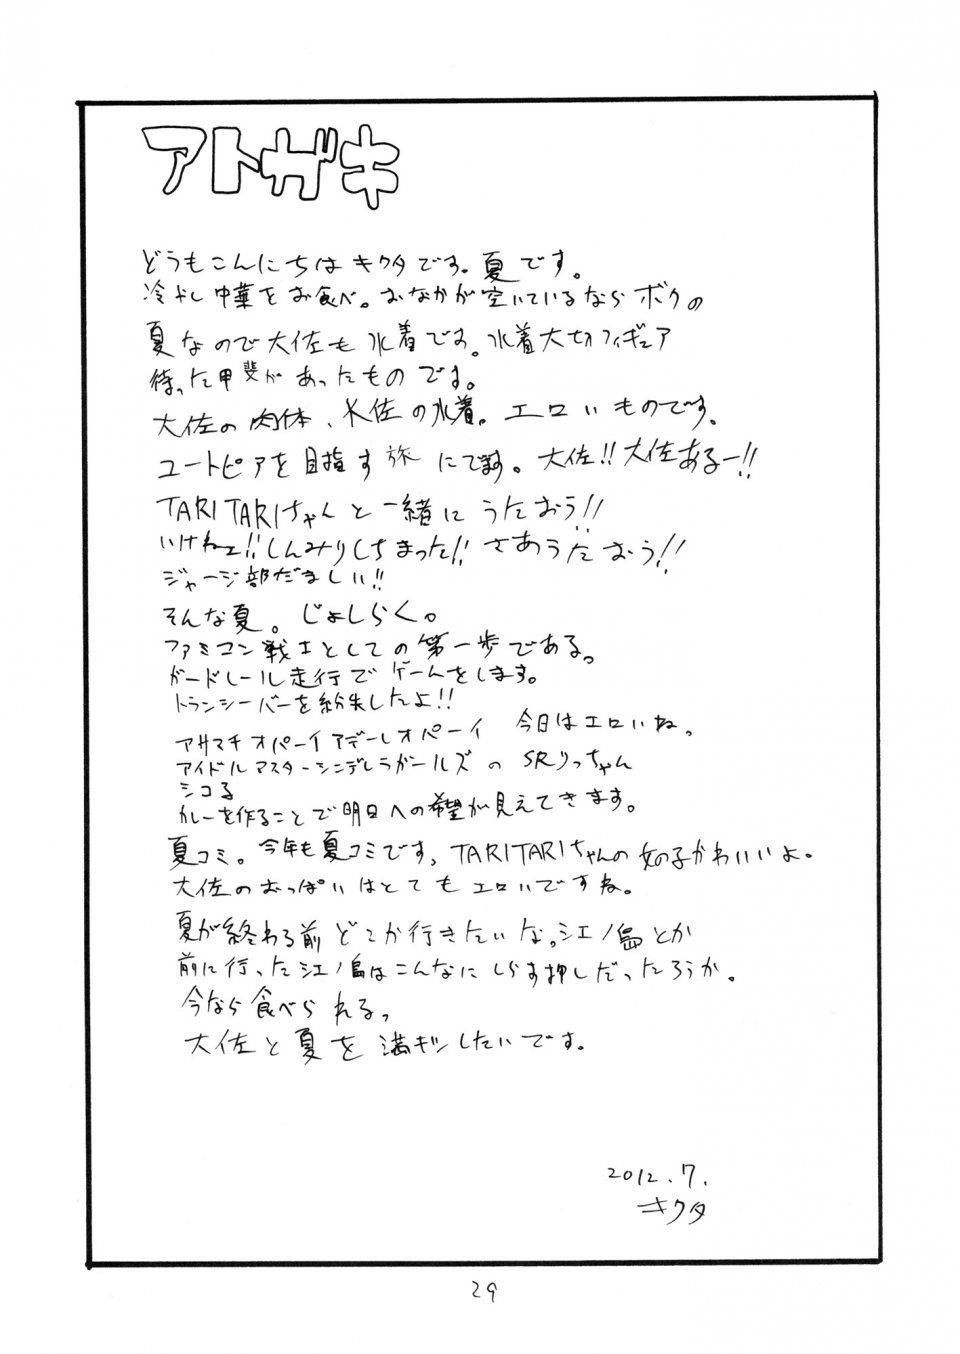 アトガキ
どうもこんにちはキクタです。夏です。
冷やし中華をお食べ。おなかが空いているならボクの
夏なので大佐も水着です。水着大切フィギュア
待った甲斐があったものです。
大佐の肉体、大佐の水着。エロいものです。
ユートピアを目指す旅にでます。大佐!!大佐あるー!!
TARITARIちゃんと一緒にうたおう!!
いけねェ!!しんみりしちまった!!さあうたおう!!
ジャージ部だましい!!
そんな夏。じょしらく。
ファミコン戦士としての第一歩である。
ガードレール走行でゲームをします。
トランシーバーを紛失したよ!!
アサマチオパーイアデーレオパーイ 今日はエロいね。
アイドルマスターシンデレラガールズの SRりっちゃん
シコる
カレーを作ることで明日への希望が見えてきます。
夏コミ。今年も夏コミです、TARITARIちゃんの女の子かわいいよ。
大佐のおっぱいはとてもエロいですね。
夏が終わる前どこか行きたいな。江ノ島とか
前に行った江ノ島はこんなにしらす押しだったろうか。
今なら食べられる。
大佐と夏を満キツしたいです。
2012.7.
キクタ
29